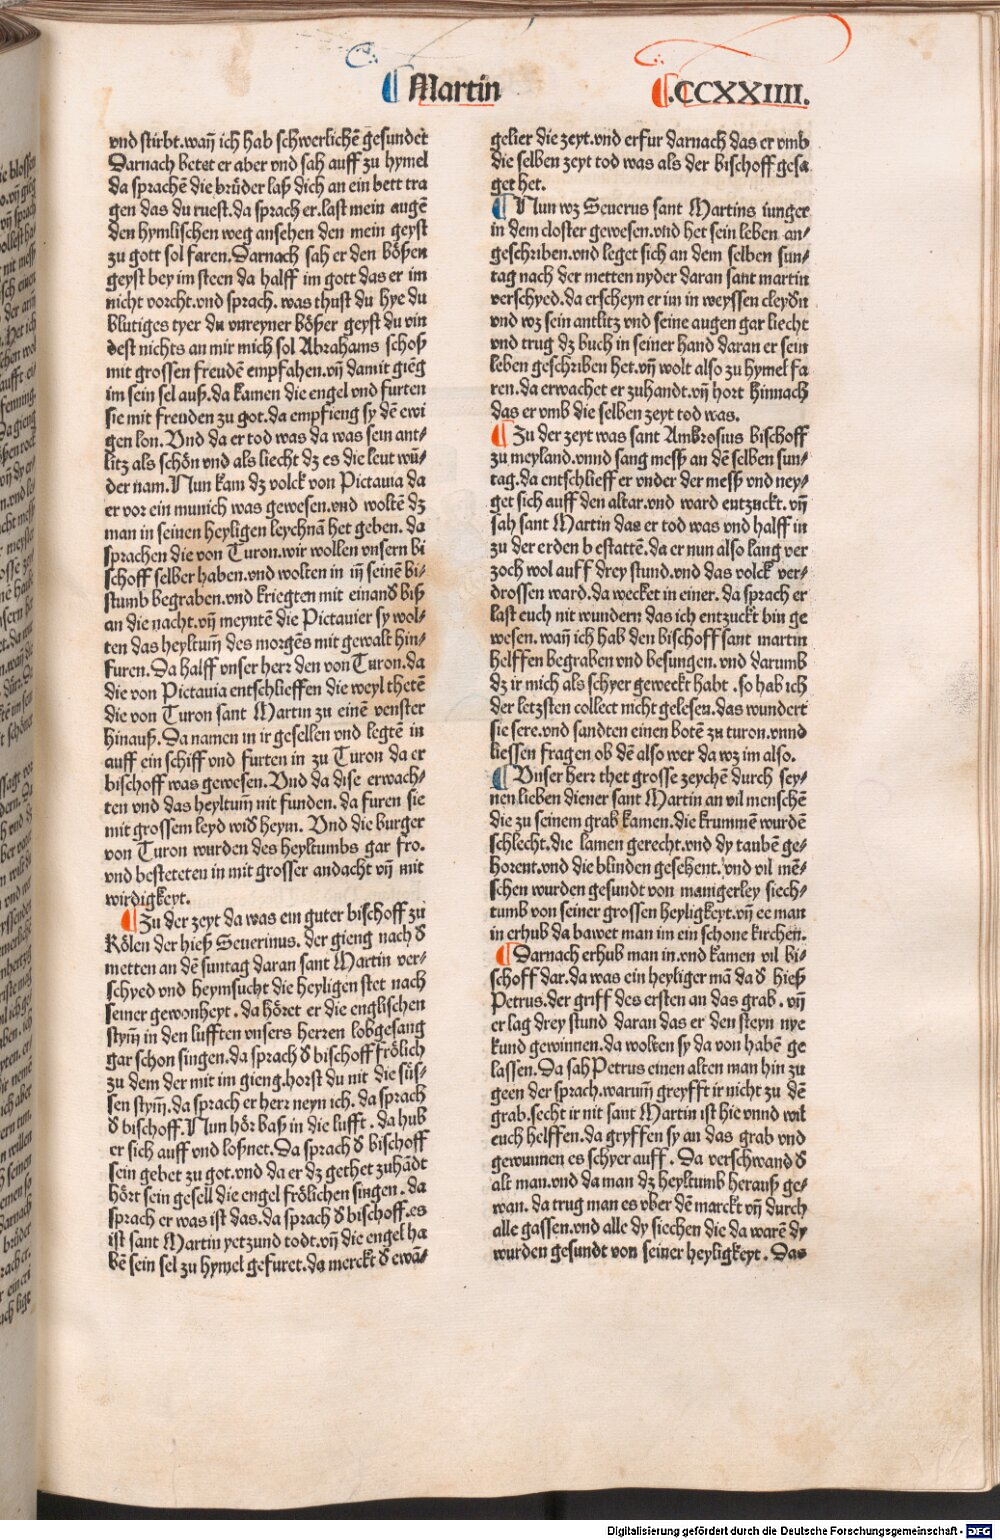 ¶ Martin
¶.CCXXIIII.
vnd stirbt.wañ ich hab schwerlichẽ gesundet
Darnach betet er aber vnd sah auff zu hymel
da sprachẽ die brůder laß dich an ein bett tra
gen das du ruest.da sprach er.last mein augẽ
den hymlischen weg ansehen den mein geyst
zu gott sol faren.Darnach sah er den bőßen
geyst bey im steen da halff im gott das er im
nicht vorcht.vnd sprach. was thust du hye du
blutiges tyer du vnreyner bőßer geyst du vin
dest nichts an mir mich sol Abrahams schoß
mit grossen freudẽ empfahen.vñ damit giẽg
im sein sel auß.da kamen die engel vnd furten
sie mit freuden zu got.da empfieng sy dẽ ewi
gen lon. Vnd da er tod was da was sein ant⸗
litz als schőn vnd als liecht dz es die leut wũ⸗
der nam.Nun kam dz volck von Pictauia da
er vor ein munich was gewesen.vnd woltẽ dz
man in seinen heyligen leychnã het geben. da
sprachen die von Turon.wir wollen vnsern bi
schoff selber haben.vnd wolten in iñ seinẽ bi⸗
stumb begraben.vnd kriegten mit einand biß
an die nacht.vñ meyntẽ die Pictauier sy wol⸗
ten das heyltum̃ des morgẽs mit gewalt hin⸗
furen. Da halff vnser herr den von Turon.da
die von Pictauia entschlieffen die weyl thetẽ
die von Turon sant Martin zu einẽ venster
hinauß. Da namen in ir gesellen vnd legtẽ in
auff ein schiff vnd furten in zu Turon da er
bischoff was gewesen. Vnd da dise erwach⸗
ten vnd das heyltum̃ nit funden. da furen sie
mit grossem leyd wid heym. Vnd die burger
von Turon wurden des heyltumbs gar fro.
vnd besteteten in mit grosser andacht vñ mit
wirdigkeyt.
¶ Zu der zeyt da was ein guter bischoff zu
Kőlen der hieß Seuerinus. der gieng nach d
metten an dẽ suntag daran sant Martin ver⸗
schyed vnd heymsucht die heyligen stet nach
seiner gewonheyt . da hőret er die englischen
stym̃ in den lufften vnsers herren lobgesang
gar schon singen.da sprach d bischoff frőlich
zu dem der mit im gieng.horst du nit die süs⸗
sen stym̃.da sprach er herr neyn ich. da sprach
d bischoff.Nun hőr baß in die lufft . da hub
er sich auff vnd loßnet. Da sprach d bischoff
sein gebet zu got.vnd da er dz gethet zuhãdt
hőrt sein gesell die engel frőlichen singen. da
sprach er was ist das.da sprach d bischoff.es
ist sant Martin yetzund todt.vñ die engel ha
bẽ sein sel zu hymel gefuret.da merckt d ewã⸗
gelier die zeyt.vnd erfur darnach das er vmb
die selben zeyt tod was als der bischoff gesa
get het.
¶ Nun wz Seuerus sant Martins iunger
in dem closter gewesen.vnd het sein leben an⸗
geschriben.vnd leget sich an dem selben sun⸗
tag nach der metten nyder daran sant martin
verschyed.da erscheyn er im in weyssen cleydn
vnd wz sein antlitz vnd seine augen gar liecht
vnd trug dz buch in seiner hand daran er sein
leben geschriben het.vñ wolt also zu hymel fa
ren.da erwachet er zuhandt.vñ hort hinnach
das er vmb die selben zeyt tod was.
¶ Zu der zeyt was sant Ambrosius bischoff
zu meyland.vnnd sang meß an dẽ selben sun⸗
tag.da entschlieff er vnder der meß vnd ney⸗
get sich auff den altar.vnd ward entzuckt.vñ
sah sant Martin das er tod was vnd halff in
zu der erden b estattẽ.da er nun also lang ver
zoch wol auff drey stund.vnd das volck ver⸗
drossen ward.da wecket in einer. da sprach er
last euch nit wundern das ich entzuckt bin ge
wesen. wañ ich hab den bischoff sant martin
helffen begraben vnd besungen. vnd darumb
dz ir mich als schyer geweckt habt .so hab ich
der letzsten collect nicht gelesen.das wundert
sie sere.vnd sandten einen botẽ zu turon.vnnd
liessen fragen ob dẽ also wer da wz im also.
¶ Vnser herr thet grosse zeychẽ durch sey⸗
nen lieben diener sant Martin an vil menschẽ
die zu seinem grab kamen.die krummẽ wurdẽ
schlecht.die lamen gerecht.vnd dy taubẽ ge⸗
horent.vnd die blinden gesehent. vnd vil mẽ⸗
schen wurden gesundt von manigerley siech⸗
tumb von seiner grossen heyligkeyt.vñ ee man
in erhub da bawet man im ein schone kirchen.
¶ Darnach erhub man in.vnd kamen vil bi⸗
schoff dar.da was ein heyliger mã da d hieß
Petrus.der griff des ersten an das grab . vñ
er lag drey stund daran das er den steyn nye
kund gewinnen.da wolten sy da von habẽ ge
lassen. Da sah Petrus einen alten man hin zu
geen der sprach.warum̃ greyfft ir nicht zu dẽ
grab.secht ir nit sant Martin ist hie vnnd wil
euch helffen.da gryffen sy an das grab vnd
gewunnen es schyer auff . Da verschwand d
alt man.vnd da man dz heyltumb herauß ge⸗
wan. da trug man es vber dẽ marckt vñ durch
alle gassen.vnd alle dy siechen die da warẽ dy
wurden gesundt von seiner heyligkeyt . Das
Digitalisierung gefördert durch die Deutsche Forschungsgemeinschaft - DFG